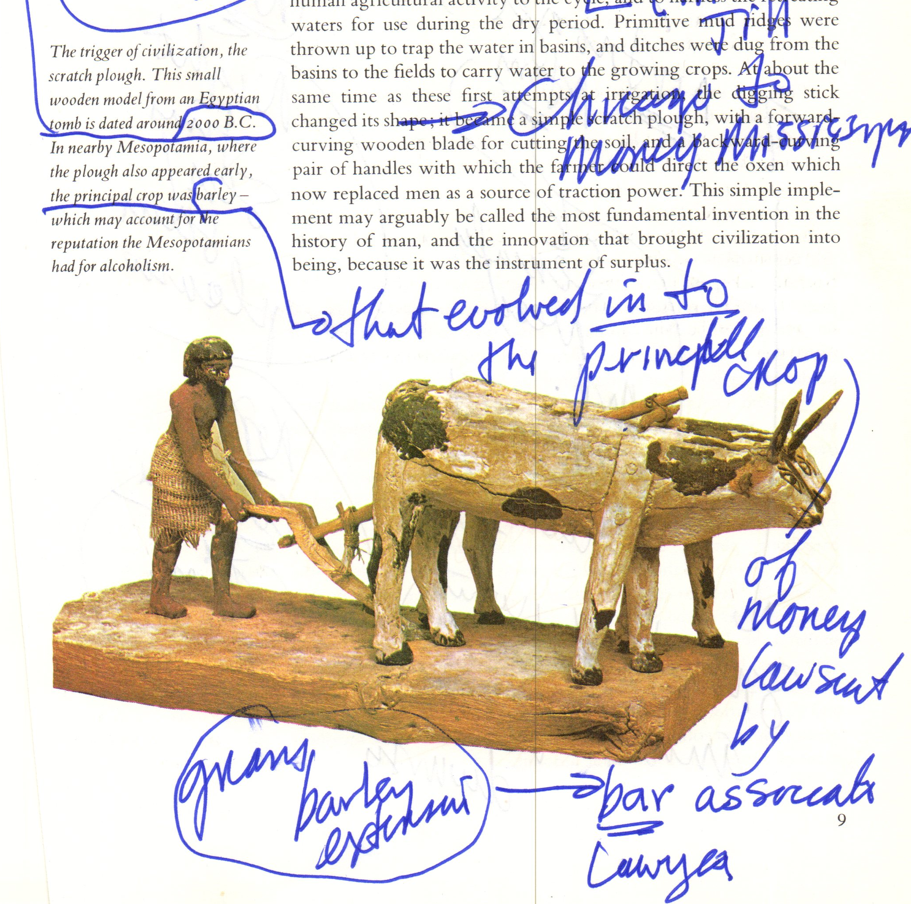 human agricultural activity to the cycle, and to
waters for use during the dry period. Primitive mud ridges were
thrown up to trap the water in basins, and ditches were dug from the
basins to the fields to carry water to the growing crops. At about the
same time as these first attempts at irrigation, the digging stick
changed its shape; it became a simple scratch plough, with a forward-
curving wooden blade for cutting the soil, and a backward-curving
pair of handles with which the farmer could direct the oxen which
now replaced men as a source of traction power. This simple imple-
ment may arguably be called the most fundamental invention in the
history of man, and the innovation that brought civilization into
being, because it was the instrument of surplus.
The trigger of civilization, the
scratch plough. This small
wooden model from an Egyptian
tomb is dated around 2000 B.C.
In nearby Mesopotamia, where
the plough also appeared early,
the principal crop was barley –
which may account for the
reputation the Mesopotamians
had for alcoholism.
Chicago to
Money Mississippi
that evolved in to
the principle crop
of
money
Lawsuit
by
bar
Lawyer
grains
barley
9